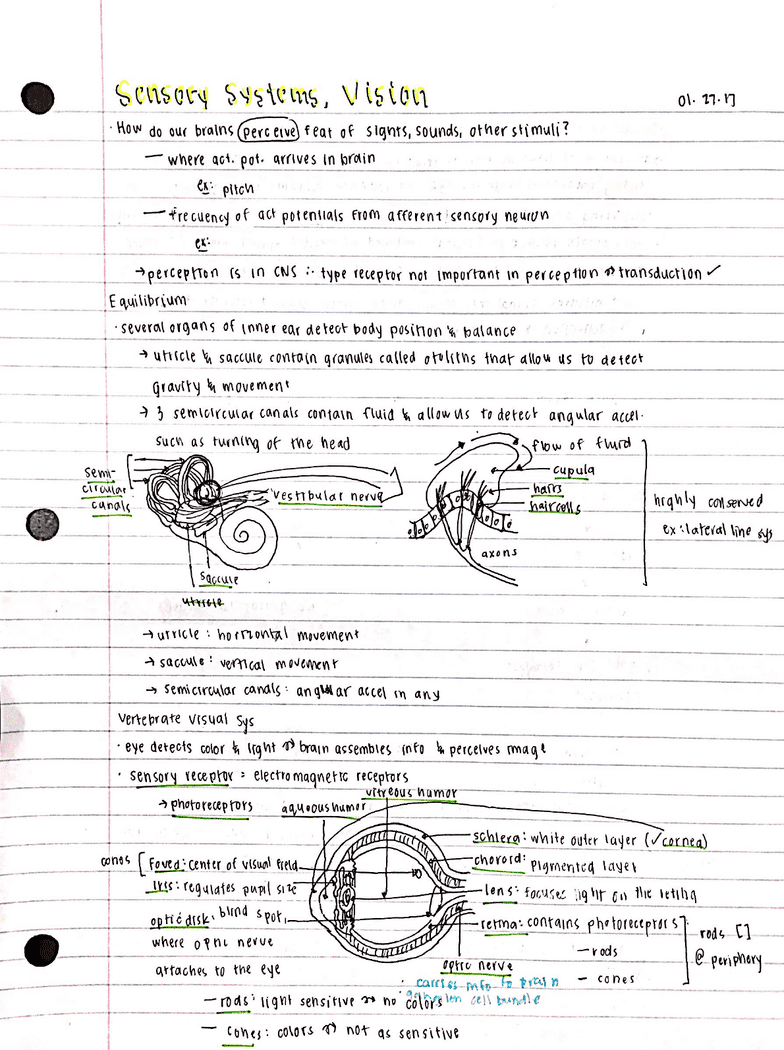 Sensory Systems, Vision
01.27.17
· How do our brains perceive feat of sights, sounds, other stimuli?
— where act. pot. arrives in brain
ex: pitch
— frecuency of act potentials from afferent sensory neuron
ex:
→ perception is in CNS ∴ type receptor not important in perception → transduction ✓
Equilibrium
· several organs of inner ear detect body position & balance
→ utricle & saccule contain granules called otoliths that allow us to detect
gravity & movement
→ 3 semicircular canals contain fluid & allow us to detect angular accel.
such as turning of the head
semi-
circular
canals
vestibular nerve
saccule
utricle
flow of fluid
cupula
hairs
haircells
axons
highly conserved
ex: lateral line sys
→ utricle: horizontal movement
→ saccule: vertical movement
→ semicircular canals: angular accel in any
Vertebrate Visual Sys
· eye detects color & light → brain assembles info & perceives image
· sensory receptor = electromagnetic receptors
→ photoreceptors
aqueous humor
vitreous humor
cones [ Fovea: center of visual field
Iris: regulates pupil size
optic disk: blind spot,
where optic nerve
attaches to the eye
schlera: white outer layer (✓cornea)
choroid: pigmented layer
lens: focuses light on the retina
retina: contains photoreceptors
— rods
— cones
rods []
@ periphery
optic nerve
· carries info to brain
ganglion cell bundle
— rods: light sensitive → no colors
— cones: colors → not as sensitive